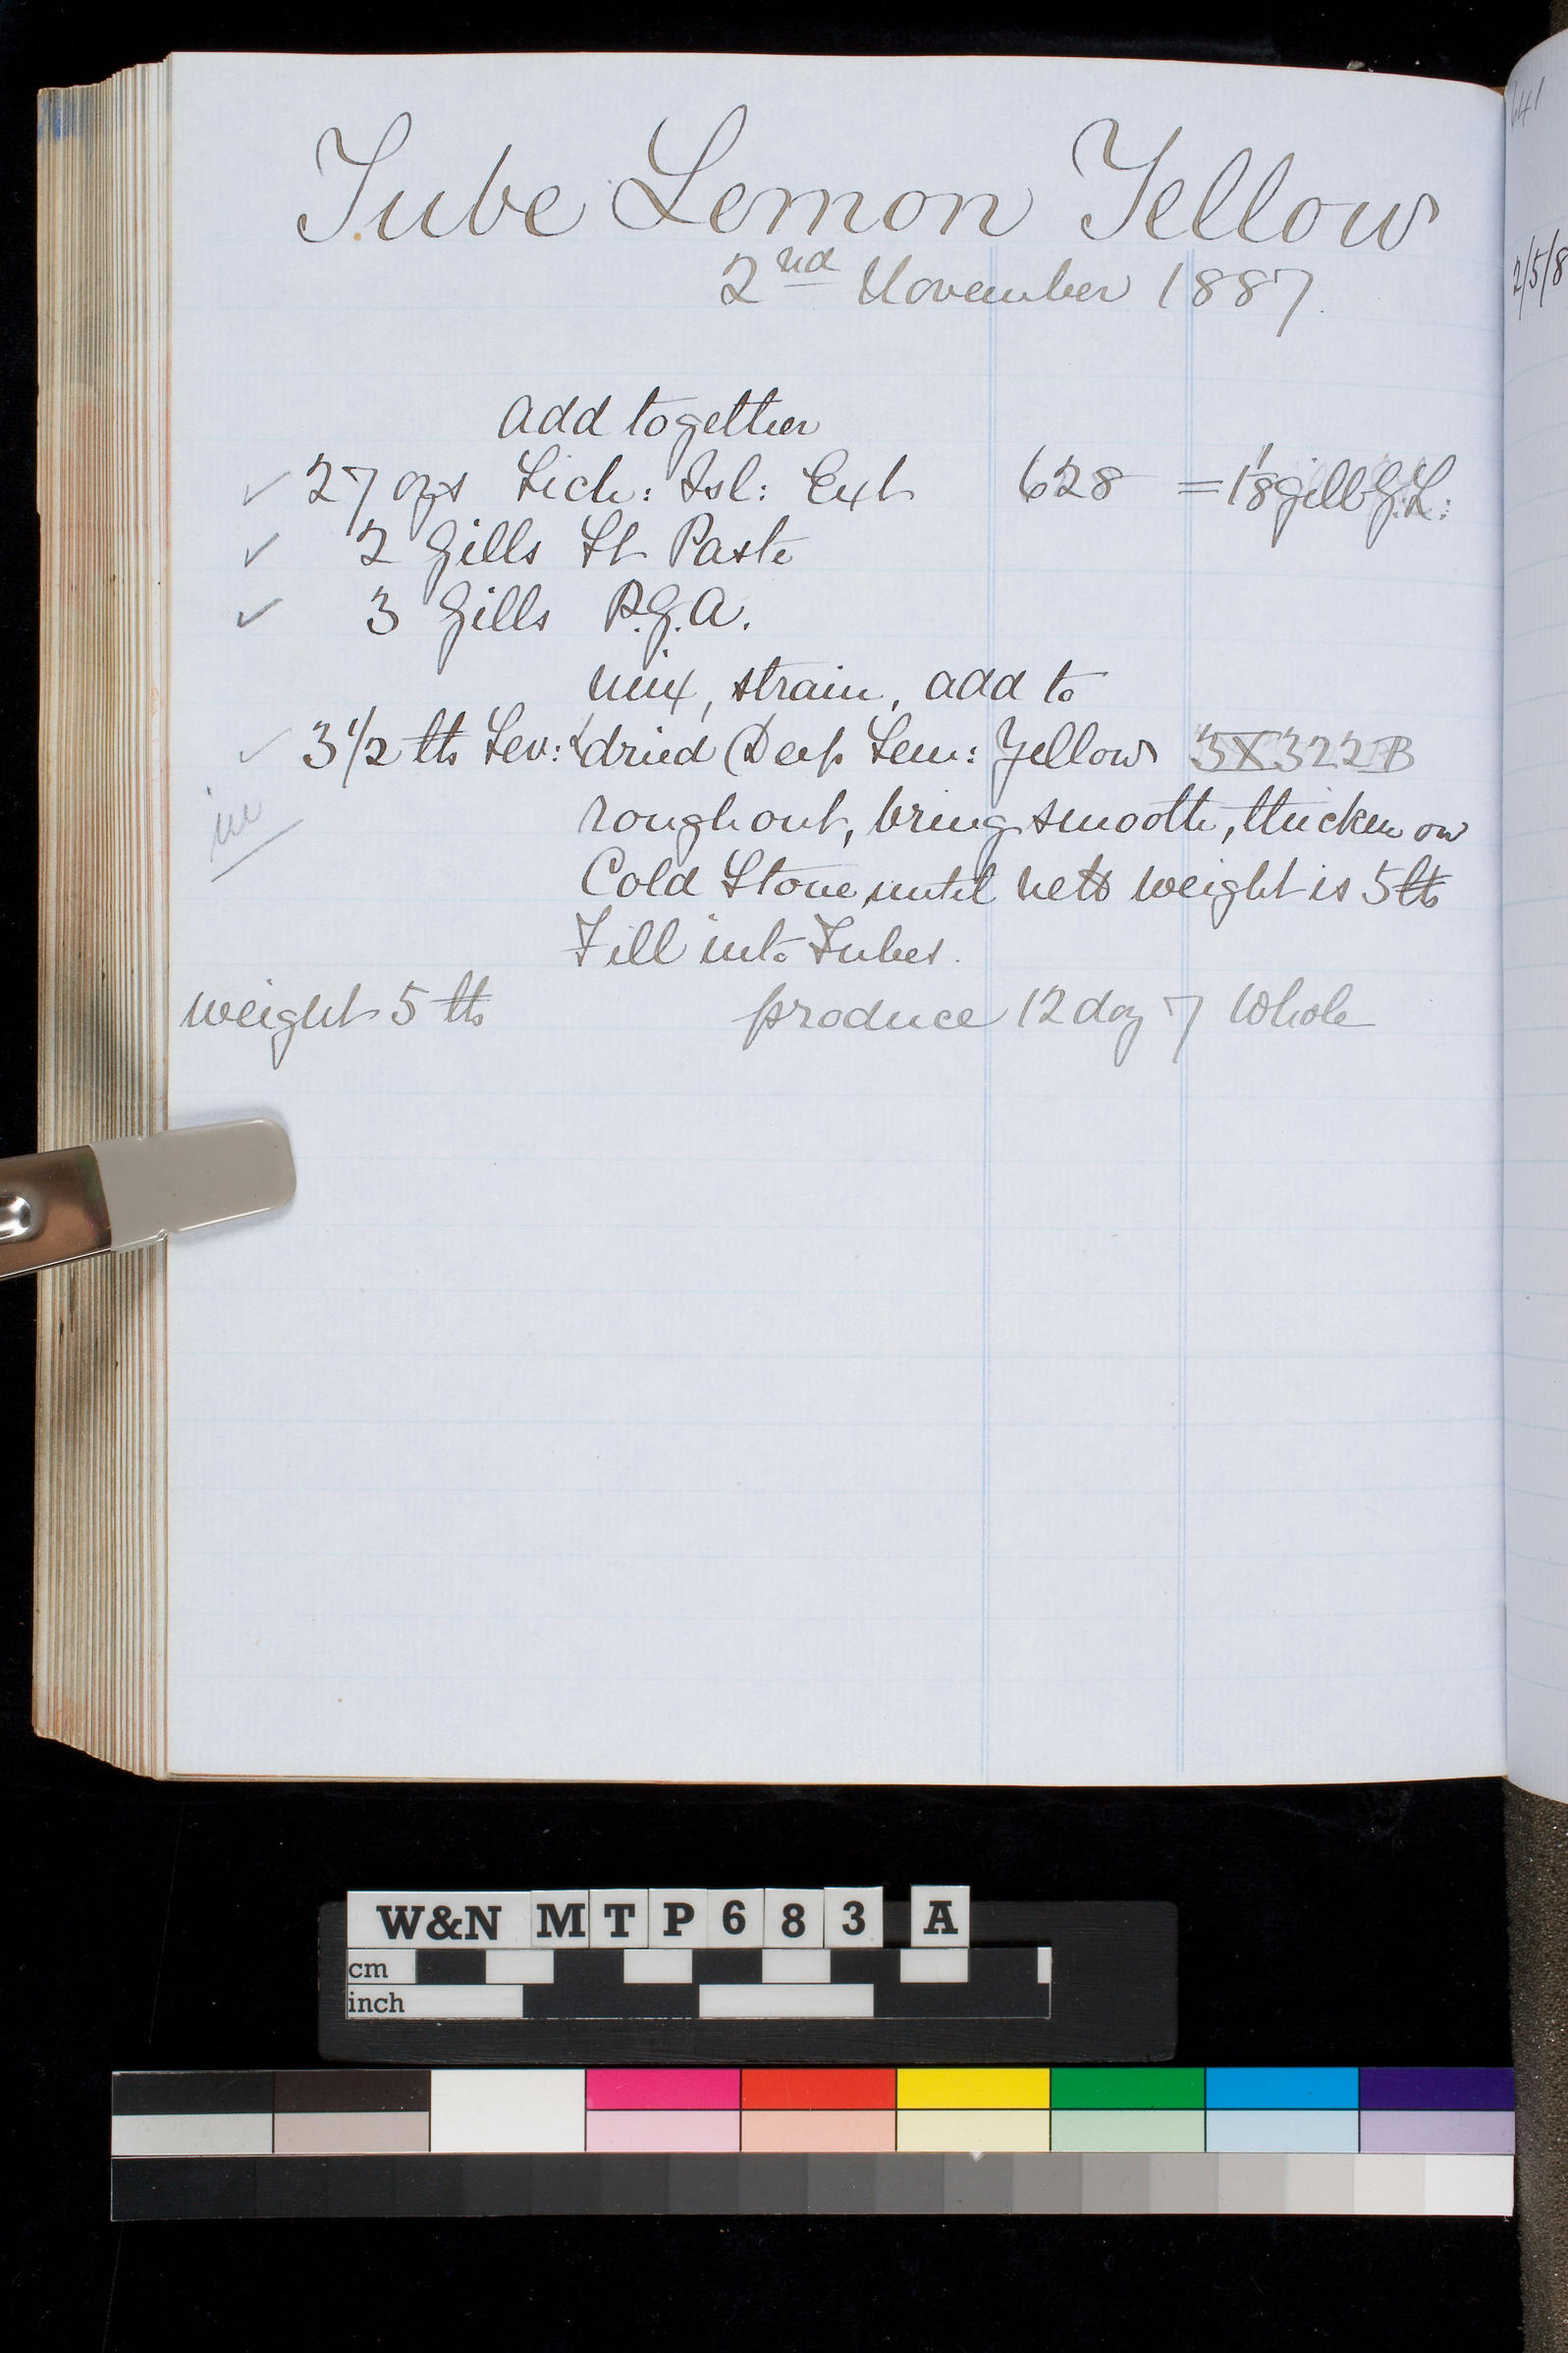 Tube Lemon Yellow
2nd November 1887.
add together
✓ 27 ozs Lich: Isl: Ext 628 = 1/8 gill G.L:
✓ 2 Gills St Paste
✓ 3 Gills P.G.A.
mix, strain, add to
✓ 3 1/2 lbs Lev: & dried Deep Lem: Yellow 3X322B
rough out, bring smooth, thicken on
Cold Stone until nett weight is 5 lbs
Fill into Tubes.
weight 5 lbs produce 12 doz 7 Whole
641
2/5/8
W&N MTP683 A
cm
inch